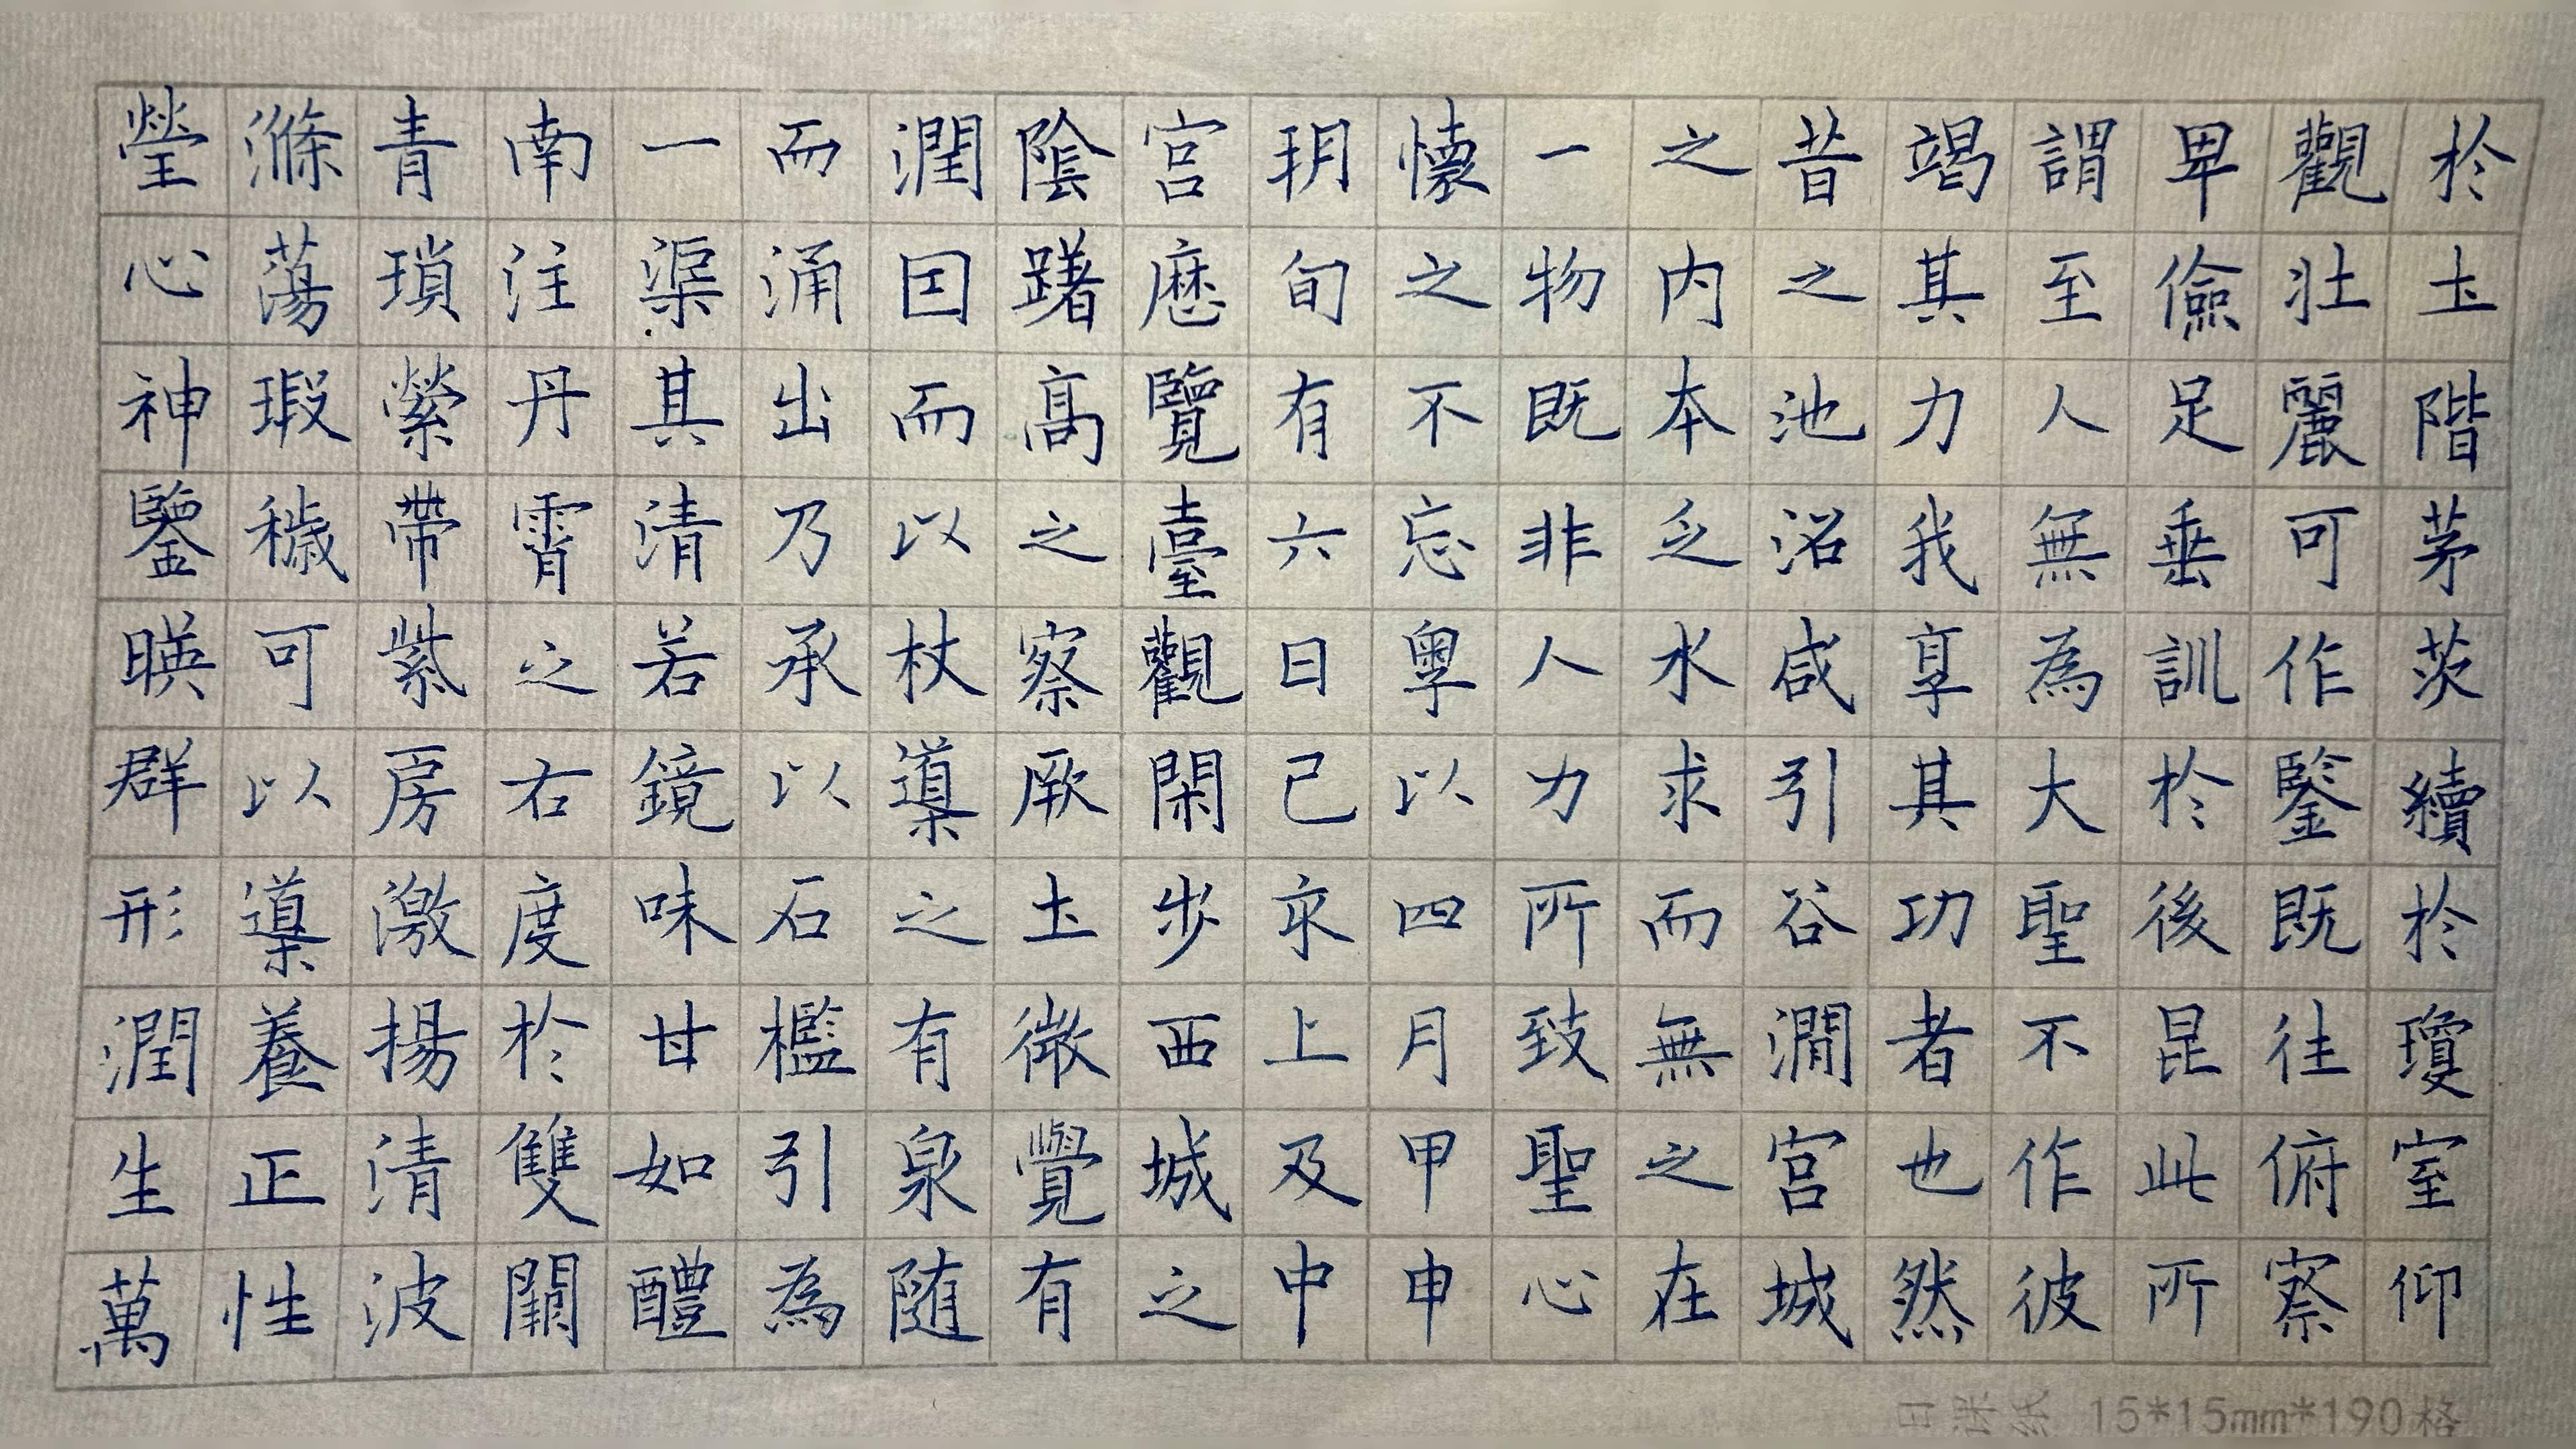 於土階茅茨續於瓊室仰
觀壮麗可作鋻既往俯察
卑儉足垂訓於後昆此所
謂至人無為大聖不作彼
竭其力我享其功者也然
昔之池沼咸引谷澗宮城
之内本乏水求而無之在
一物既非人力所致聖心
懷之不忘粵以四月甲申
玥旬有六日己亥上及中
宮歷覽臺觀閑步西城之
陰躇高之察厥土微覺有
潤因而以杖導之有泉随
而涌出乃承以石檻引為
一渠其清若鏡味甘如醴
南注丹霄之右度於雙闕
青瑣縈帶紫房激揚清波
滌蕩瑕穢可以導養正性
瑩心神鋻暎群形潤生萬
日课纸 15*15mm*190格